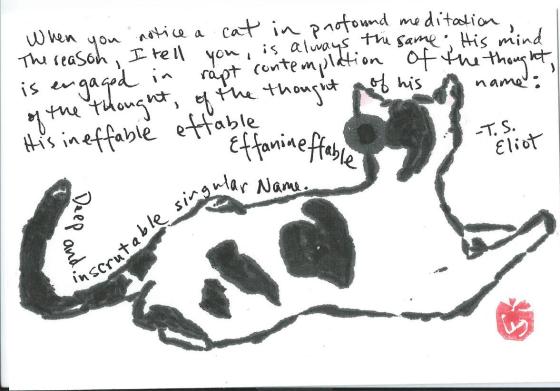 When you notice a cat in profound meditation,
The reason, I tell you, is always the same: His mind
is engaged in rapt contemplation of the thought,
of the thought, of the thought of his name:
His ineffable effable
Effanineffable
-T.S.
Eliot
Deep and inscrutable singular Name.